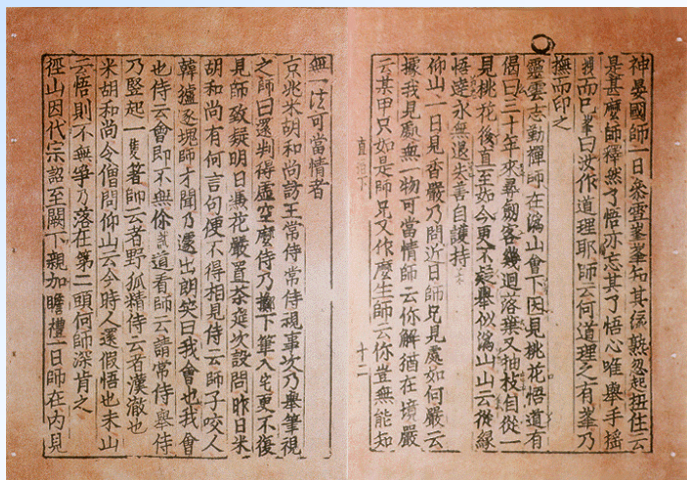 神晏國師一日叅雪峯峯知其緣熟忽起搊住云
是甚麽師釋然了悟亦忘其了悟心唯擧手搖
拽而已峯曰汝作道理耶師云何道理之有峯乃
撫而印之
靈雲志勤禪師在潙山會下因見桃花悟道有
偈曰三十年來尋劒客幾迴落葉又抽枝自從一
見桃花後直至如今更不疑擧似潙山山云從緣
悟達永無退失善自護持
仰山一日見香嚴乃問近日師兄見處如何嚴云
據我見處無一物可當情師云你解猶在境嚴
云某甲只如是師兄又作麽生師云你豈無能知
直指下
十二
無一法可當情者
京兆米胡和尚訪王常侍常侍視事次乃擧筆視
之師曰還判得虛空麽侍乃擲下筆入宅更不復
見師致疑明日憑花嚴置茶筵次設問昨日米
胡和尚有何言句便不得相見侍云師子咬人
韓獹逐塊師才聞乃還出朗笑曰我會也我會
也侍云會即不無你試道看師云請常侍擧侍
乃竪起一隻筯師云者野狐精侍云者漢徹也
米胡和尚令僧問仰山云今時人還假悟也未山
云悟則不無爭乃落在第二頭何師深肯之
徑山因代宗詔至闕下親加瞻禮一日師在內見